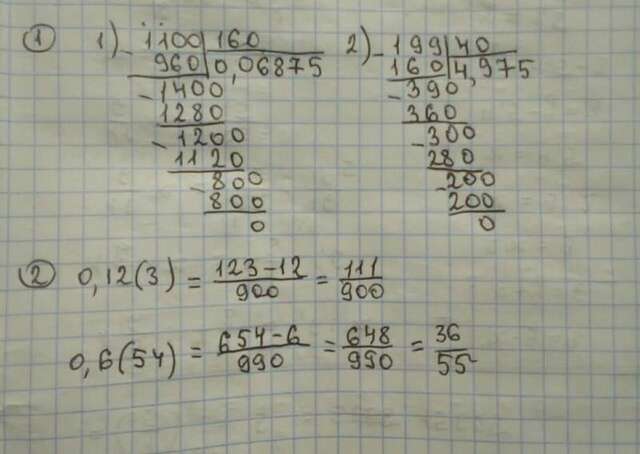 ① 1) - 1100 | 160    2) - 199 | 40
960 | 0,06875    160 | 4,975
- 1400    - 390
1280    360
- 1200    - 300
1120    280
- 800    - 200
800    200
0    0
② 0,12(3) = \frac{123-12}{900} = \frac{111}{900}
0,6(54) = \frac{654-6}{990} = \frac{648}{990} = \frac{36}{55}